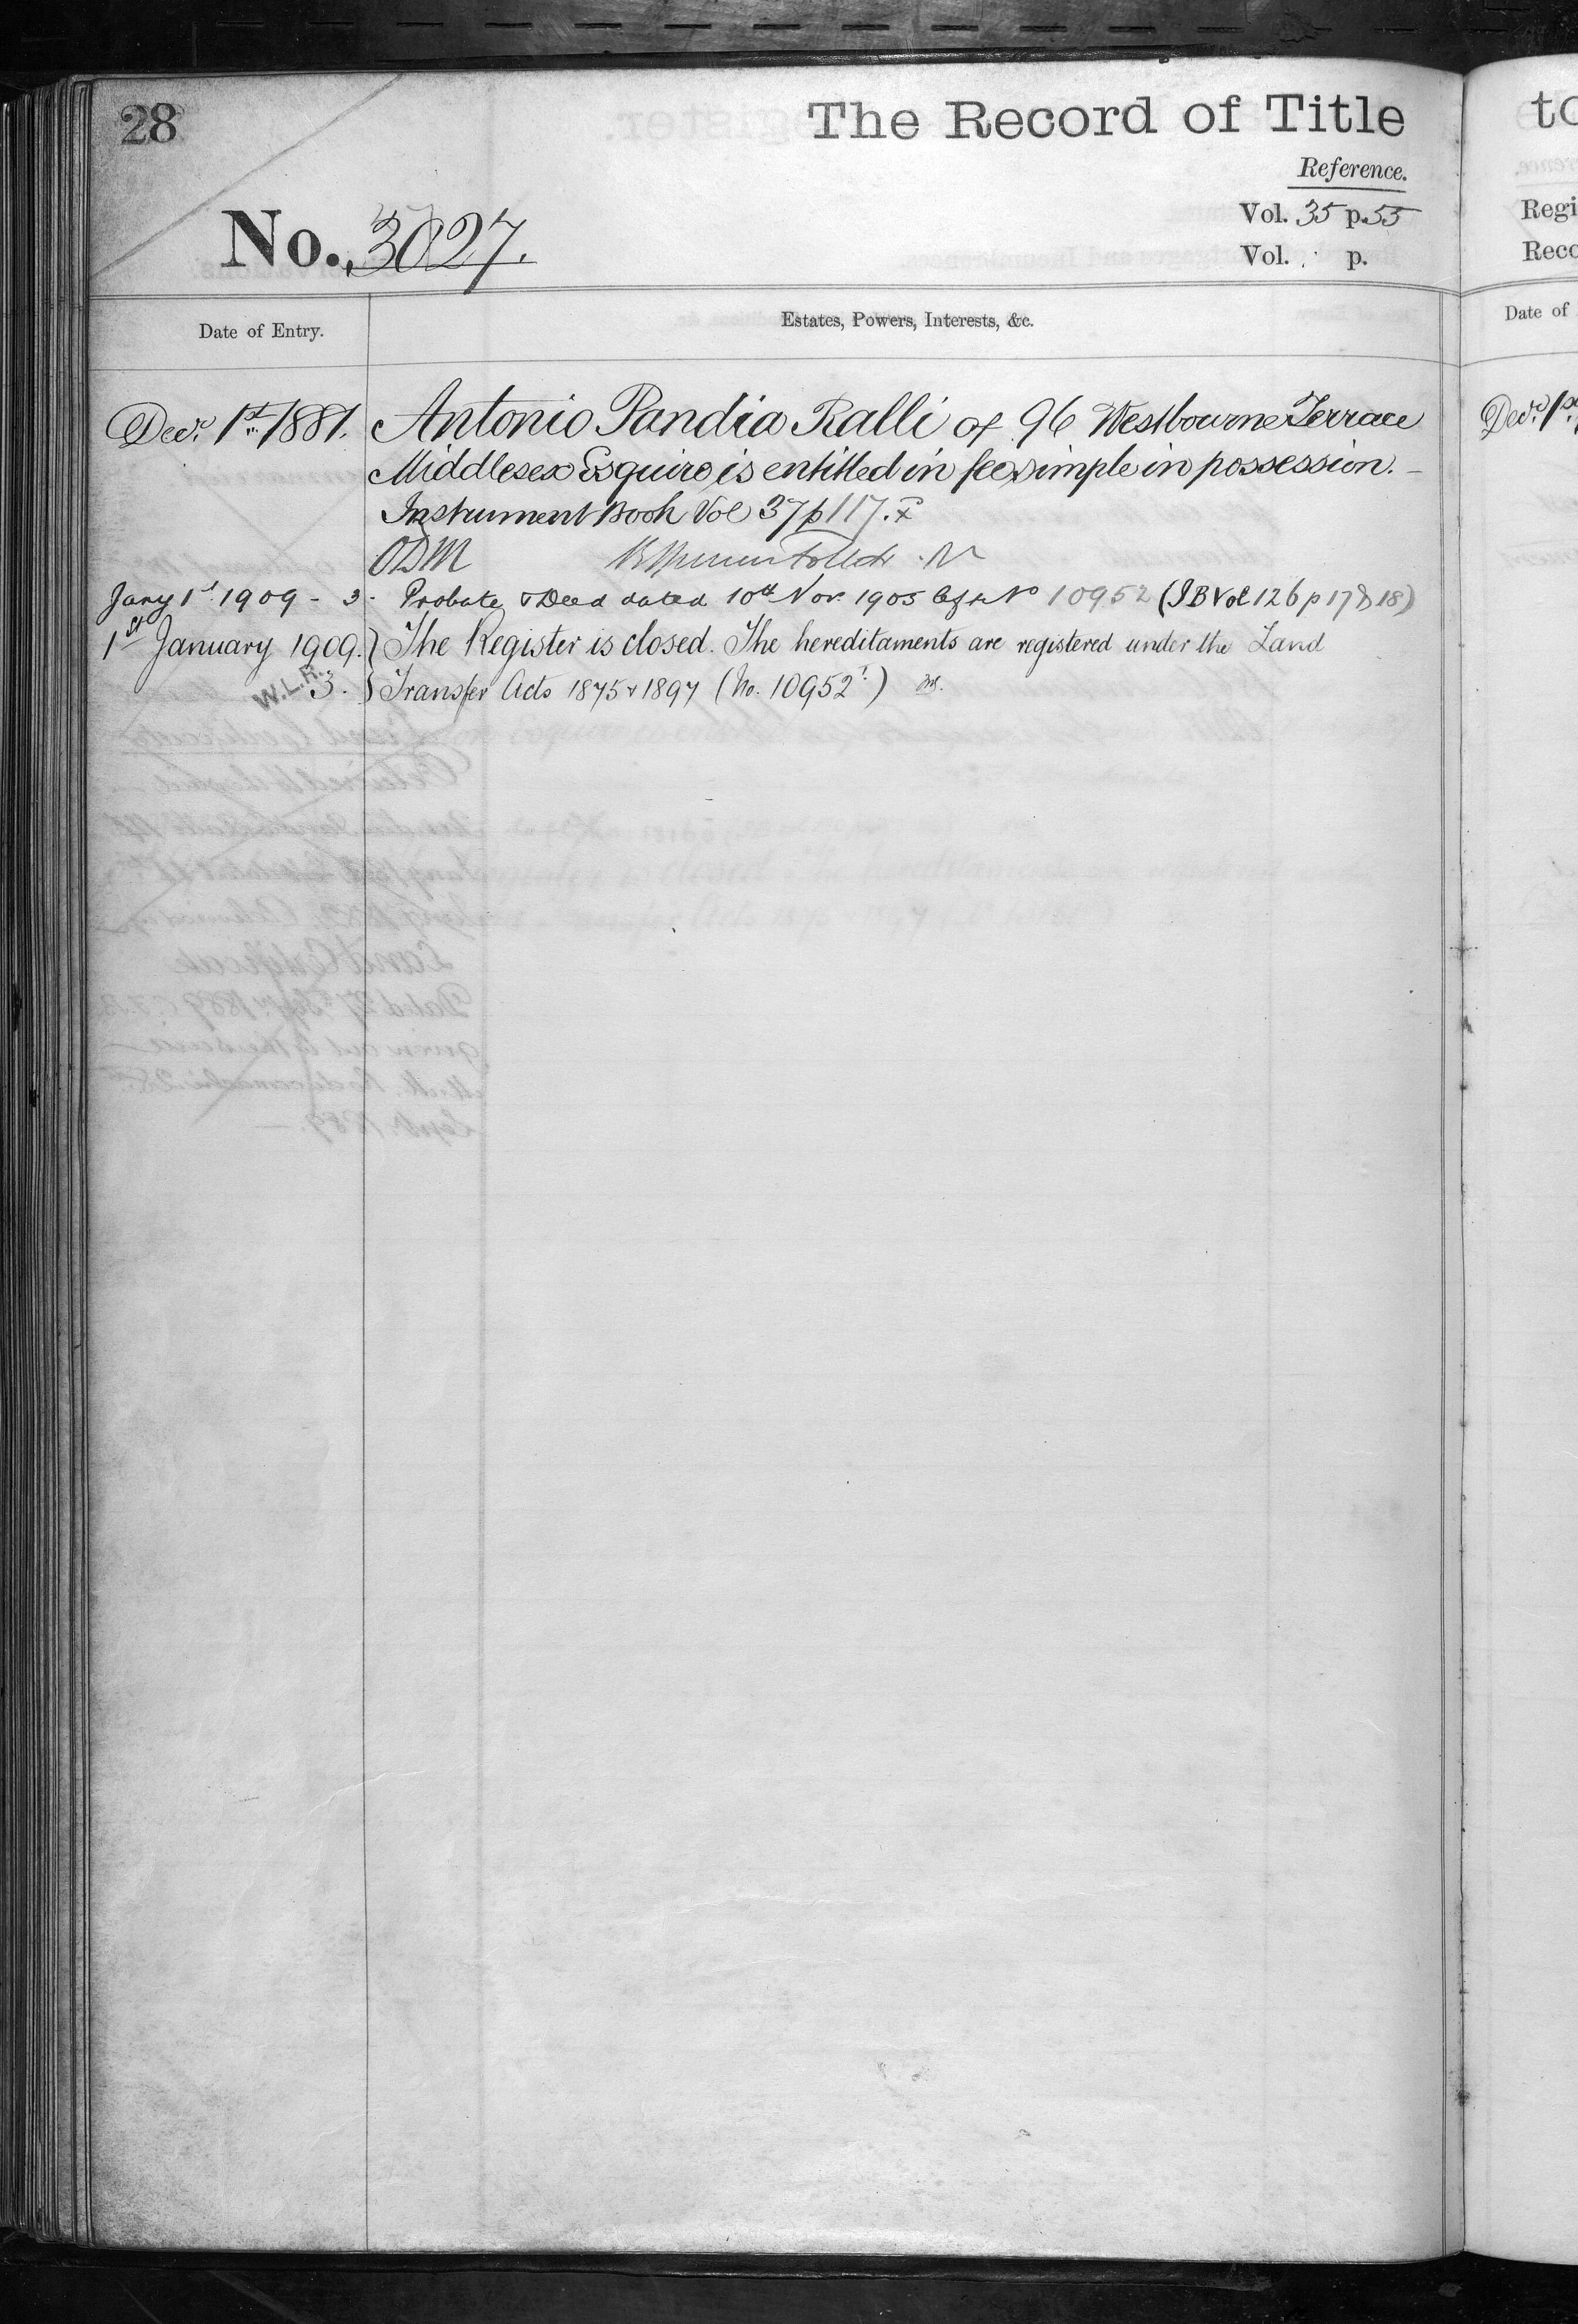 28
The Record of Title
Reference.
Vol. 35 p. 55
No. 3027.
Vol. p.
Date of Entry.
Estates, Powers, Interests, &c.
Decr. 1st 1881.
Antonio Pandia Ralli of 96 Westbourne Terrace
Middlesex Esquire is entitled in fee simple in possession. –
Instrument Book Vol 37 p 117.
ODM
Jany 1st 1909 - 3.
Probate & Deed dated 10th Nov. 1905 No 10952 (IB Vol 126 p 17 & 18)
1st January 1909.
The Register is closed. The hereditaments are registered under the Land
W.L.R. 3.
Transfer Acts 1875 & 1897 (No. 10952)
to
Regi
Reco
Date of
Decr. 1st